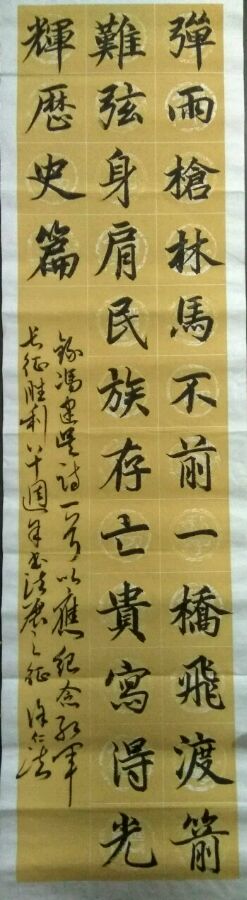 彈雨槍林馬不前一橋飛渡箭
難弦身肩民族存亡貴寫得光
輝歷史篇
錄馮建吳詩一首以應紀念紅軍
长征胜利八十週年书法展之征